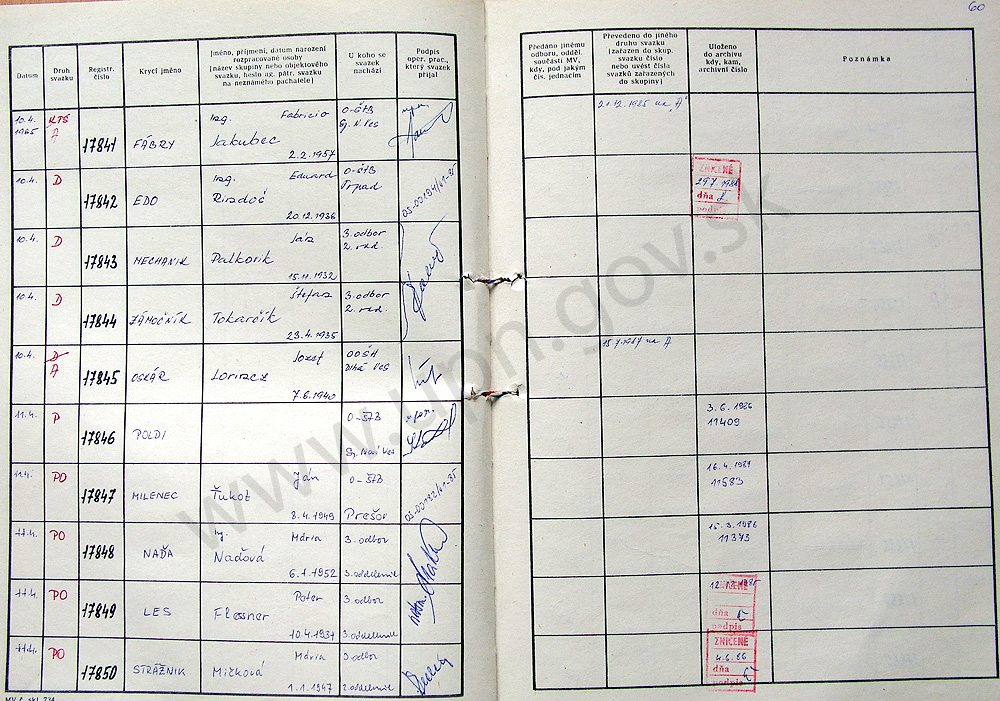 60
Datum
Druh svazku
Registr. číslo
Krycí jméno
Jméno, příjmení, datum narození
rozpracované osoby
(název skupiny nebo objektového
svazku, heslo ag. pátr. svazku
na neznámého pachatele)
U koho se
svazek
nachází
Podpis
oper. prac.,
který svazek
přijal
Předáno jinému
odboru, odděl.
součásti MV,
kdy, pod jakým
čís. jednacím
Převedeno do jiného
druhu svazku
(zařazen do skup.
svazku číslo
nebo uvést čísla
svazků zařazených
do skupiny)
Uloženo
do archívu
kdy, kam,
archivní číslo
Poznámka
10.4. 1985 KTS A 17841 FÁBRY Ing. Fabricio Jakubec 2.2.1957 O-ŠTB Sp. N. Ves 21.12.1985 na A
10.4. D 17842 EDO Ing. Eduard 20.12.1936 O-ŠTB ZNIČENÉ dňa
10.4. D 17843 MECHANIK Ján 15.11.1932 3. odbor
10.4. D 17844 ZÁMOČNÍK Štefan Tokarčík 23.4.1935 3. odbor
10.4. D A 17845 OSKÁR Jozef Lorincz 7.6.1940 15.7.1987 na A
11.4. P 17846 POLDI O-ŠTB 3.6.1986 11409
11.4. PO 17847 MILENEC Ján Ťukot 8.4.1949 O-ŠTB Prešov 05-00132/41-85 16.4. 11583
11.4. PO 17848 NAĎA Ing. Mária Naďová 6.1.1952 3. odbor 3. oddelenie 15.3.1986 11373
11.4. PO 17849 LES Peter Flessner 10.4.1931 3. odbor 3. oddelenie ZNIČENÉ dňa podpis
11.4. PO 17850 STRÁŽNIK Mária Mičková 1.1.1947 3. odbor 2. oddelenie ZNIČENÉ 4.6.86 dňa podpis
www.upn.gov.sk